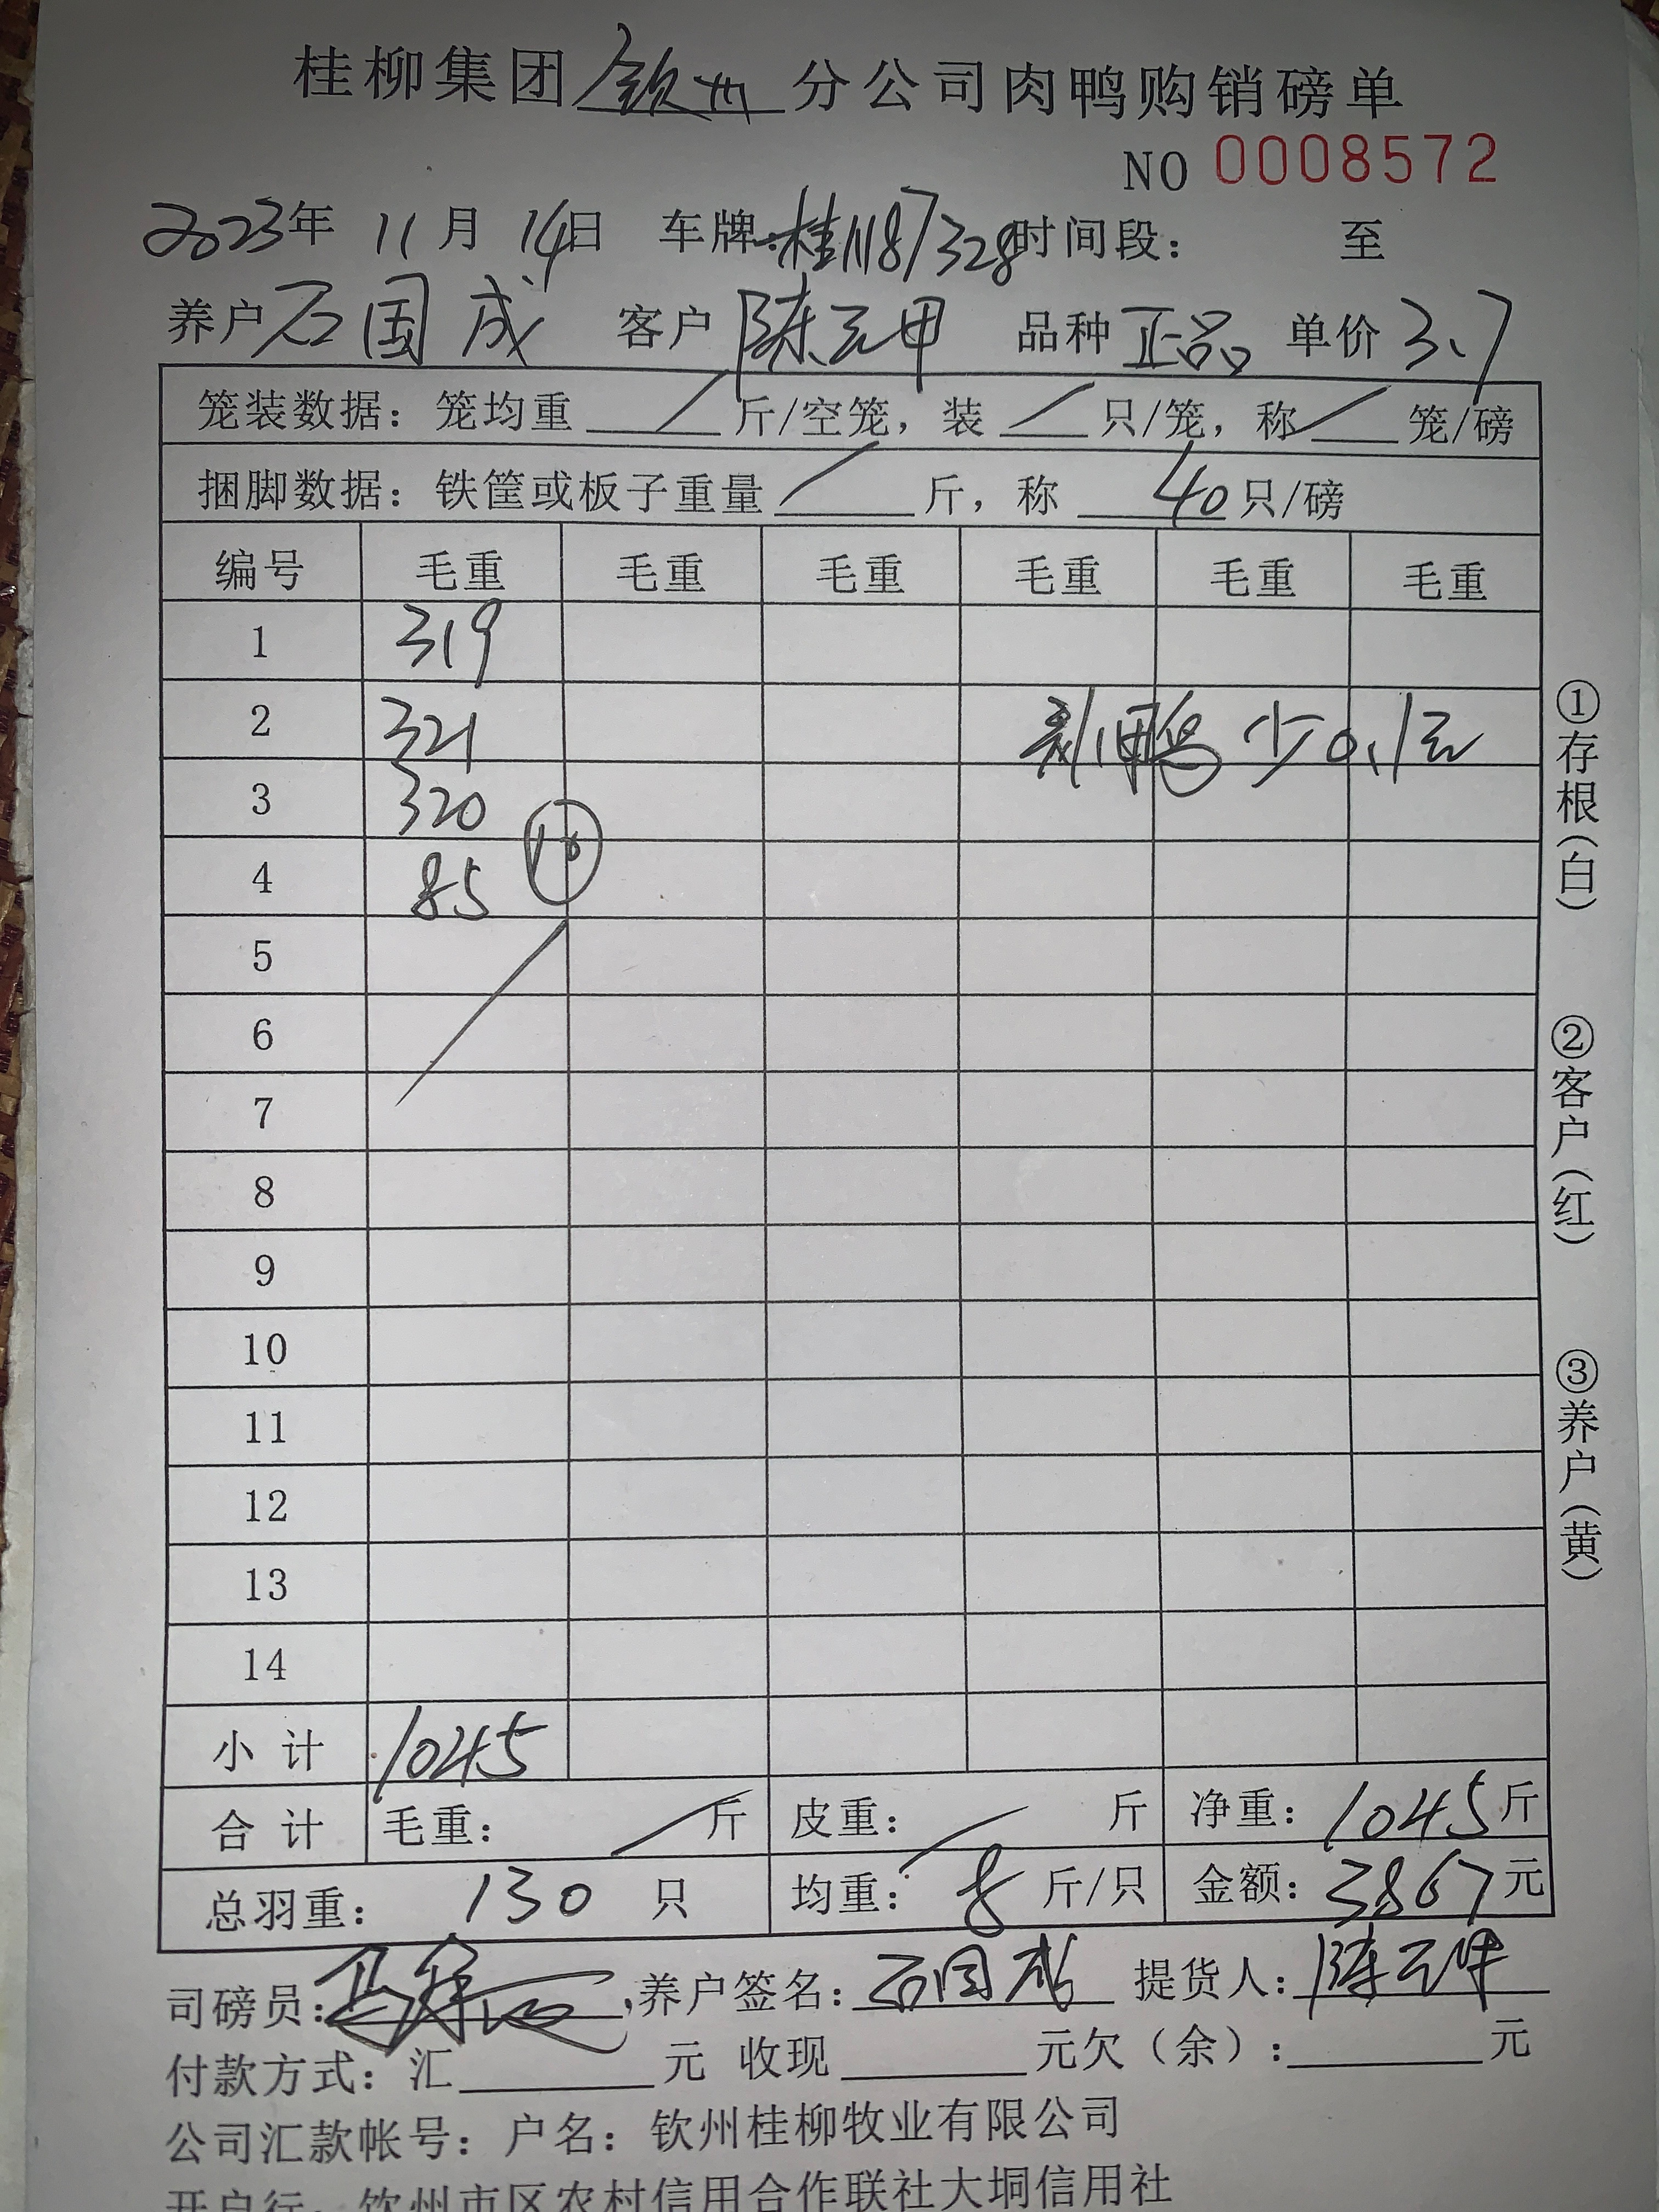 桂柳集团钦州分公司肉鸭购销磅单
NO 0008572
2023年 11月 14日 车牌:桂1187328时间段: 至
养户石国成 客户陈云甲 品种正品 单价3.7
笼装数据:笼均重 / 斤/空笼,装 / 只/笼,称 / 笼/磅
捆脚数据:铁筐或板子重量 / 斤,称 40只/磅
编号 毛重 毛重 毛重 毛重 毛重 毛重
1 319
2 321 鸭少0.1元
3 320
4 85 10
5
6
7
8
9
10
11
12
13
14
小计 1045
合计 毛重: / 斤 皮重: / 斤 净重:1045斤
总羽重: 130 只 均重:8斤/只 金额:3867元
司磅员: ,养户签名:石国成 提货人:陈云
付款方式:汇 元 收现 元欠(余): 元
公司汇款帐号:户名:钦州桂柳牧业有限公司
开户行:钦州市区农村信用合作联社大垌信用社
①存根(白)
②客户(红)
③养户(黄)